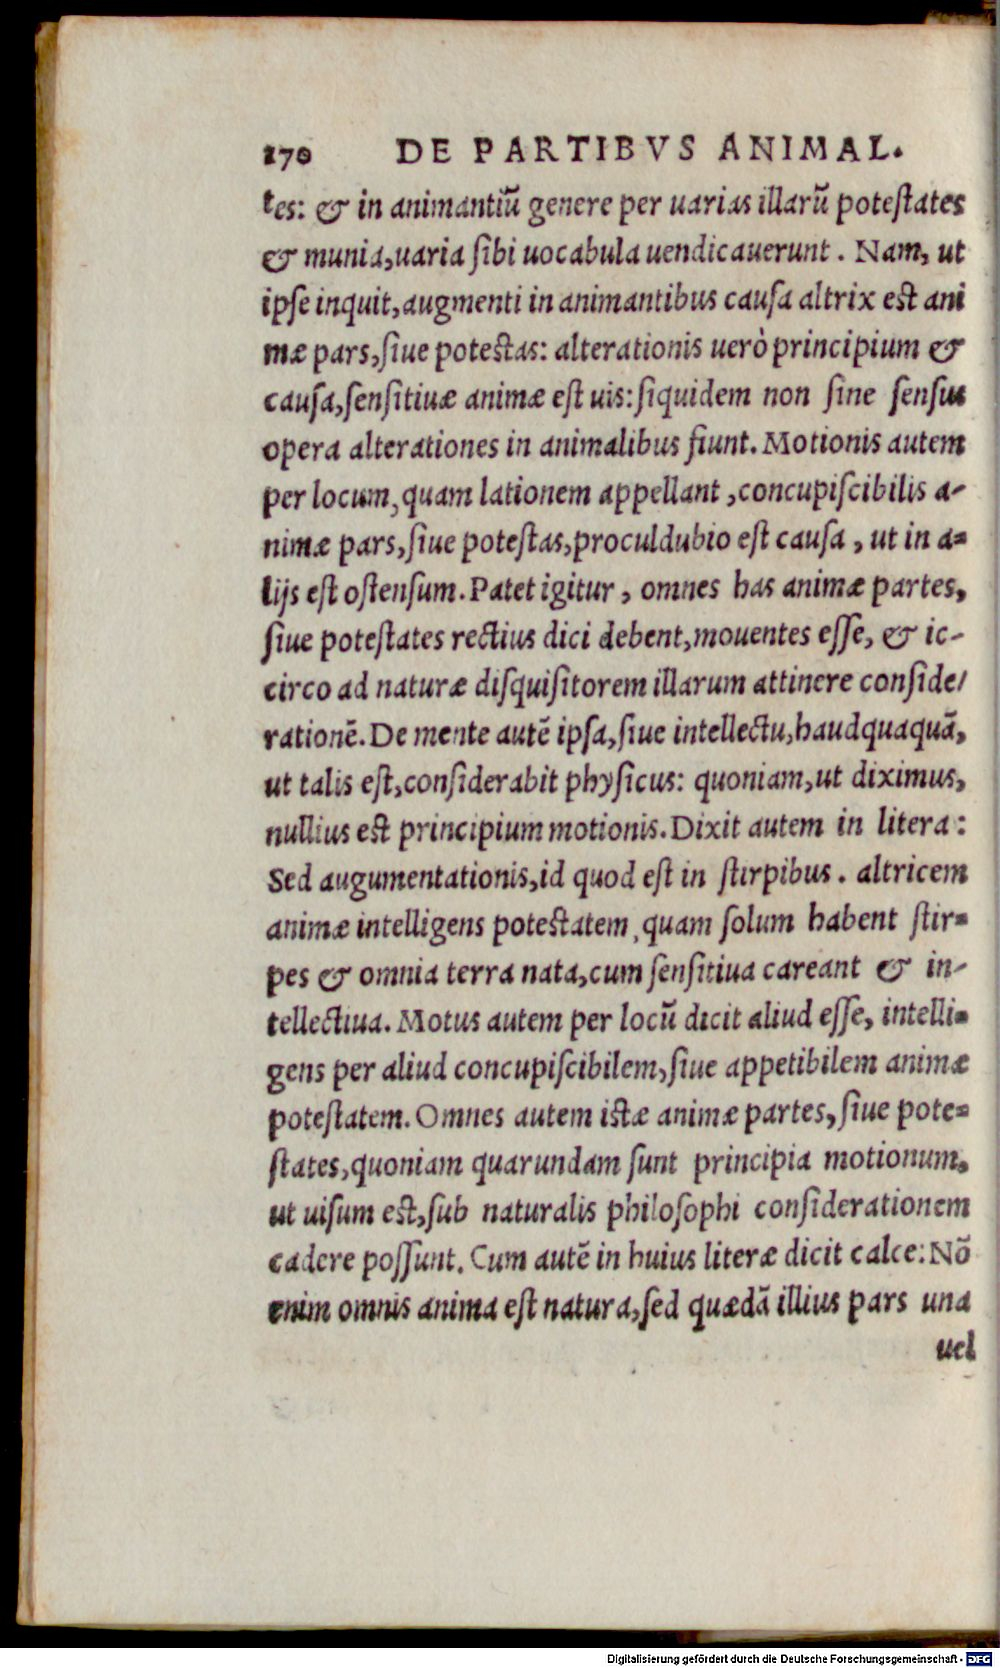 170 DE PARTIBVS ANIMAL.
tes: & in animantiū genere per uarias illarū poteſtates
& munia,uaria ſibi uocabula uendicauerunt . Nam, ut
ipſe inquit,augmenti in animantibus cauſa altrix eſt ani
mæ pars,ſiue poteſtas: alterationis uerò principium &
cauſa,ſenſitiuæ animæ eſt uis: ſiquidem non ſine ſenſus
opera alterationes in animalibus fiunt. Motionis autem
per locum,quam lationem appellant ,concupiſcibilis a-
nimæ pars,ſiue poteſtas,proculdubio eſt cauſa , ut in a-
lijs eſt oſtenſum. Patet igitur , omnes has animæ partes,
ſiue poteſtates rectius dici debent,mouentes eſſe, & ic-
circo ad naturæ diſquiſitorem illarum attinere conſide/
rationē. De mente autē ipſa,ſiue intellectu,haudquaquā,
ut talis eſt,conſiderabit phyſicus: quoniam,ut diximus,
nullius eſt principium motionis. Dixit autem in litera:
Sed augumentationis,id quod eſt in ſtirpibus . altricem
animæ intelligens poteſtatem ,quam ſolum habent ſtir-
pes & omnia terra nata,cum ſenſitiua careant & in-
tellectiua. Motus autem per locū dicit aliud eſſe, intelli-
gens per aliud concupiſcibilem,ſiue appetibilem animæ
poteſtatem. Omnes autem iſtæ animæ partes, ſiue pote-
ſtates,quoniam quarundam ſunt principia motionum,
ut uiſum eſt,ſub naturalis philoſophi conſiderationem
cadere poſſunt. Cum autē in huius literæ dicit calce: Nō
enim omnis anima eſt natura,ſed quædā illius pars una
uel
Digitalisierung gefördert durch die Deutsche Forschungsgemeinschaft - DFG